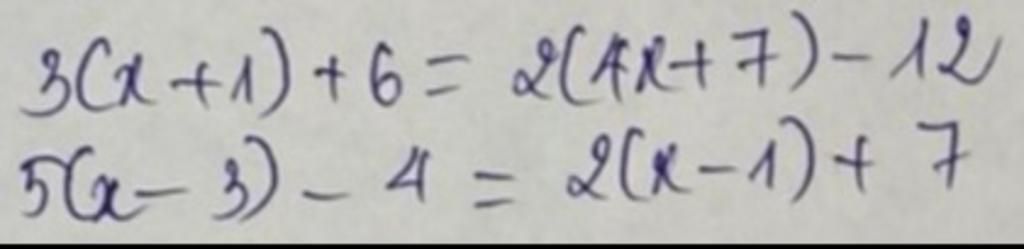 3(x+1)+6= 2(4x+7)-12
5(x-3)-4 = 2(x-1)+7